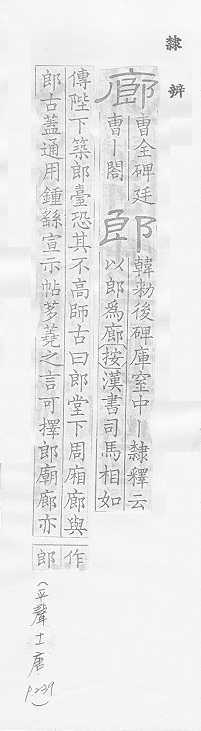 隸辨
廊
曹全碑廷
曹丨閤
郎
韓勑後碑庫室中丨隸釋云
以郎為廊按漢書司馬相如
傳陛下築郎臺恐其不高師古曰郎堂下周廂廊與
郎古蓋通用鍾繇宣示帖芻蕘之言可擇郎廟廊亦
作
郎
(平聲十一唐